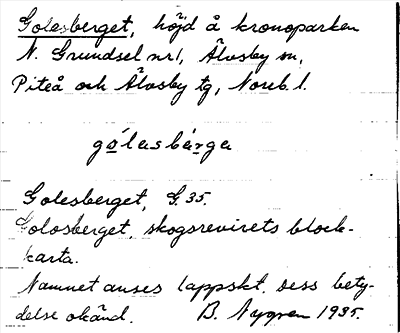 Golesberget, höjd å kronoparken
N. Grundsel nr 1, Älvsby sn,
Piteå och Älvsby tg, Norrb. l.
gólasbärga
Golesberget, G. 35.
Golosberget, skogsrevirets block-
karta.
Namnet anses lappskt, dess bety-
delse okänd. B. Nygren 1935.